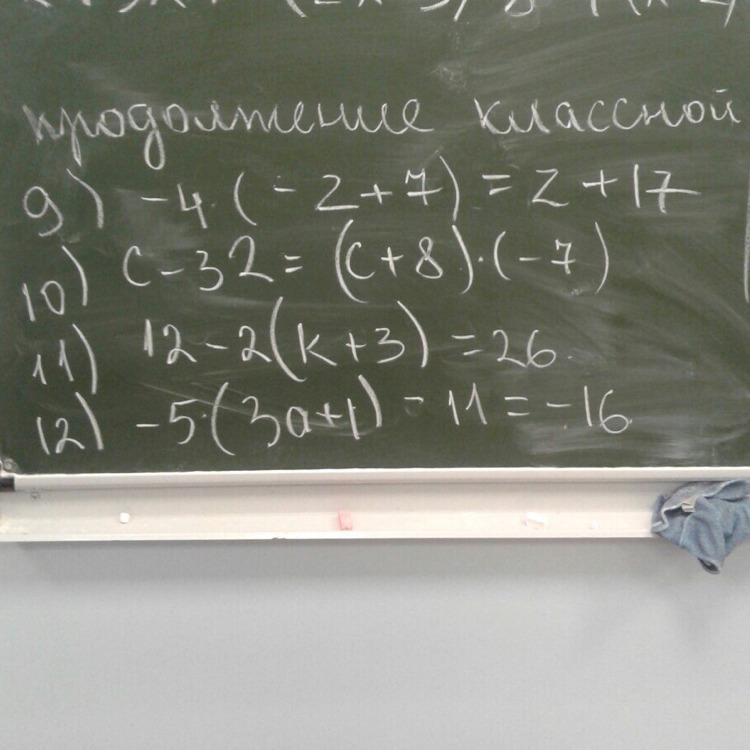 продолжение классной
9) -4·(-z+7) = z+17
10) c-32 = (c+8)·(-7)
11) 12-2(k+3) = 26
12) -5·(3a+1) - 11 = -16